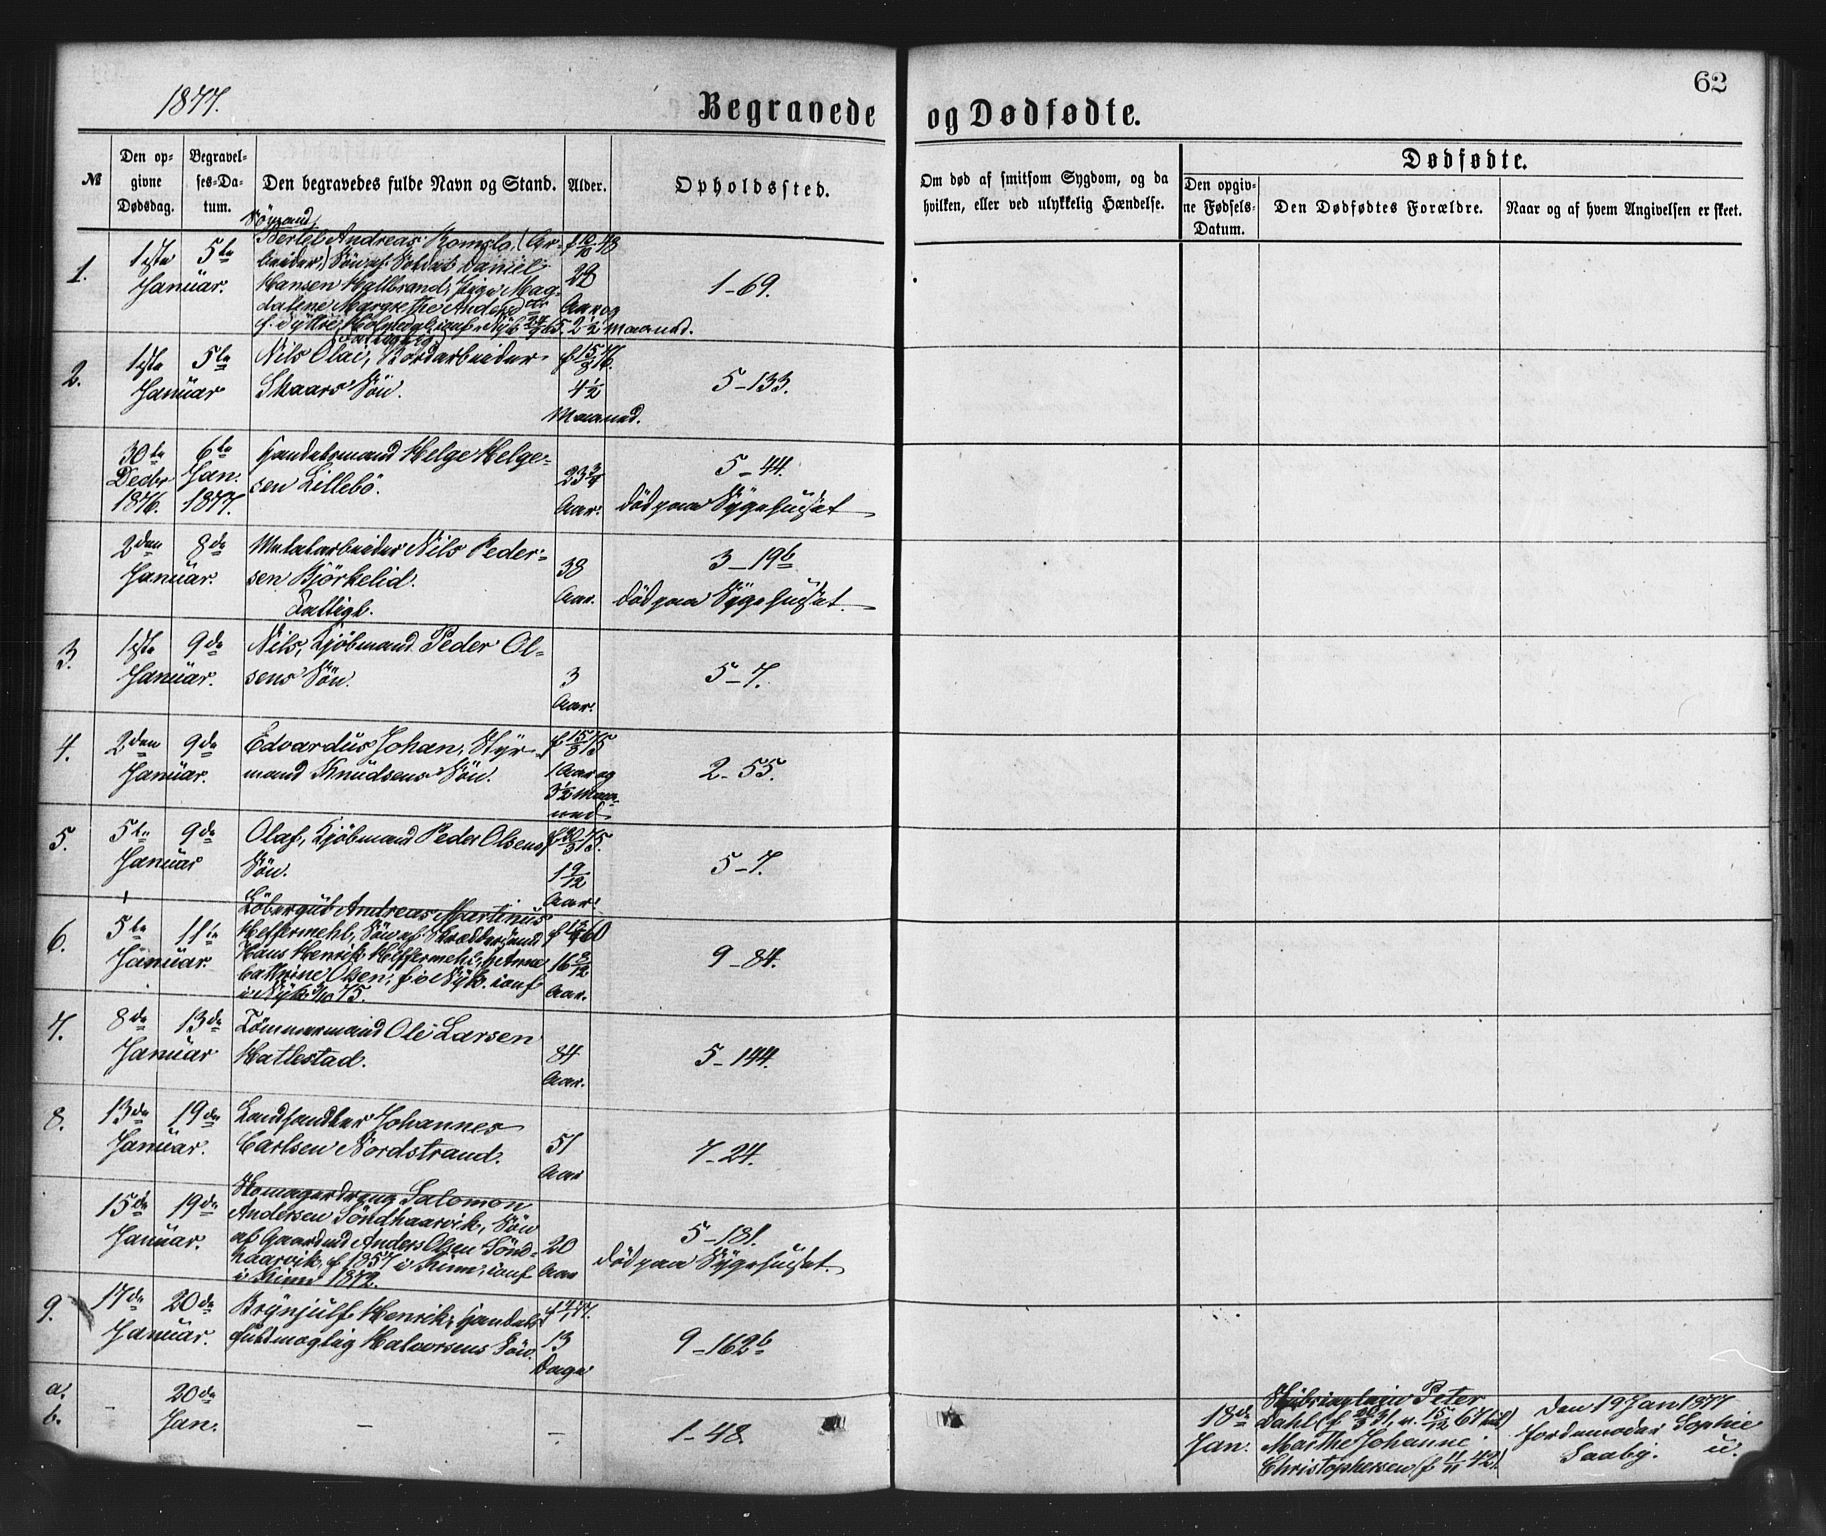 1877.
Begravede
og Dødfødte.
62
№
Den op-
givne
Dødsdag.
Begravel-
ses-Da-
tum.
Den begravedes fulde Navn og Stand.
Alder.
Opholdssted.
Om død af smitsom Sygdom, og da
hvilken, eller ved ulykkelig Hændelse.
Dødfødte.
Den opgiv-
ne Fødsels-
Datum.
Den Dødfødtes Forældre.
Naar og af hvem Angivelsen er skeet.
1.
1ste
Januar.
5te
Bertel Andreas Romslo, (Ar-
beider,) Søn af Soldat Daniel
Hansen Hallbrand, Pige Mag-
dalene Margrethe
Aar og
2½ Maaned.
1-69.
2.
1ste
Januar
5te
Nils Olai, Jordarbeider
Skaars Søn.
f 15/8 76.
4½
Maaned.
5-133.
30te
Decbr
1876.
6te
Jan.
1877.
Handelsmand Helge Helge-
sen Lillebö.
23¾
Aar.
5-44.
död paa Sygehuset
2den
Januar.
8de
Metalarbeider Nils Peder-
sen Björkelid.
Fattigl.
38
Aar.
3-19b
död paa Sygehuset.
3.
1ste
Januar.
9de
Nils, Kjöbmand Peder Ol-
sens Søn.
3
Aar.
5-7.
4.
2den
Januar.
9de
Edvardus Johan, Styr-
mand Knudsens Søn.
f 15/8 75
1 Aar og
3½ Maa-
ned
2-55.
5.
5te
Januar
9de
Olaf, Kjöbmand Peder Olsens
Søn.
1 9/12
Aar.
5-7.
6.
5te
Januar.
11te
Löbergut Andreas Martinus
Heffermehl, Søn af Skræddersvend
Hans Henrik Heffermehl,
Cathrine Olsen, f i Nyk. conf
i Nyk. 75.
16 3/12
Aar.
9-84.
7.
8de
Januar
13de
Tömmermand Ole Larsen
Hatlestad.
84
Aar.
5-144.
8.
13de
Januar.
19de
Landhandler Johannes
Carlsen Nordstrand.
51
Aar
7-24.
15de
Januar.
19de
Skomagerdreng Salomon
Andersen Söndhaarvik, Søn
af Gaardmd Anders Olsen Sönd-
haarvik, f 1857 i Kinn, conf
i Kinn 1872.
20
Aar
5-181.
död paa Sygehuset.
9.
17de
Januar.
20de
Brynjulf Henrik, Handels-
fuldmægtig Halvorsens Søn.
f 4/1 77.
13
Dage
9-162b
a.
b.
-
20de
Jan.
-
-
1-48.
18de
Jan.
Skibscaptein Peter
Dahl (f 20/3 31, v. 15/12 67 med)
Marthe Johanne
Christophersen (f 4/11 42).
Den 19 Jan 1877
Jordemoder Sophie
Saaby. u.